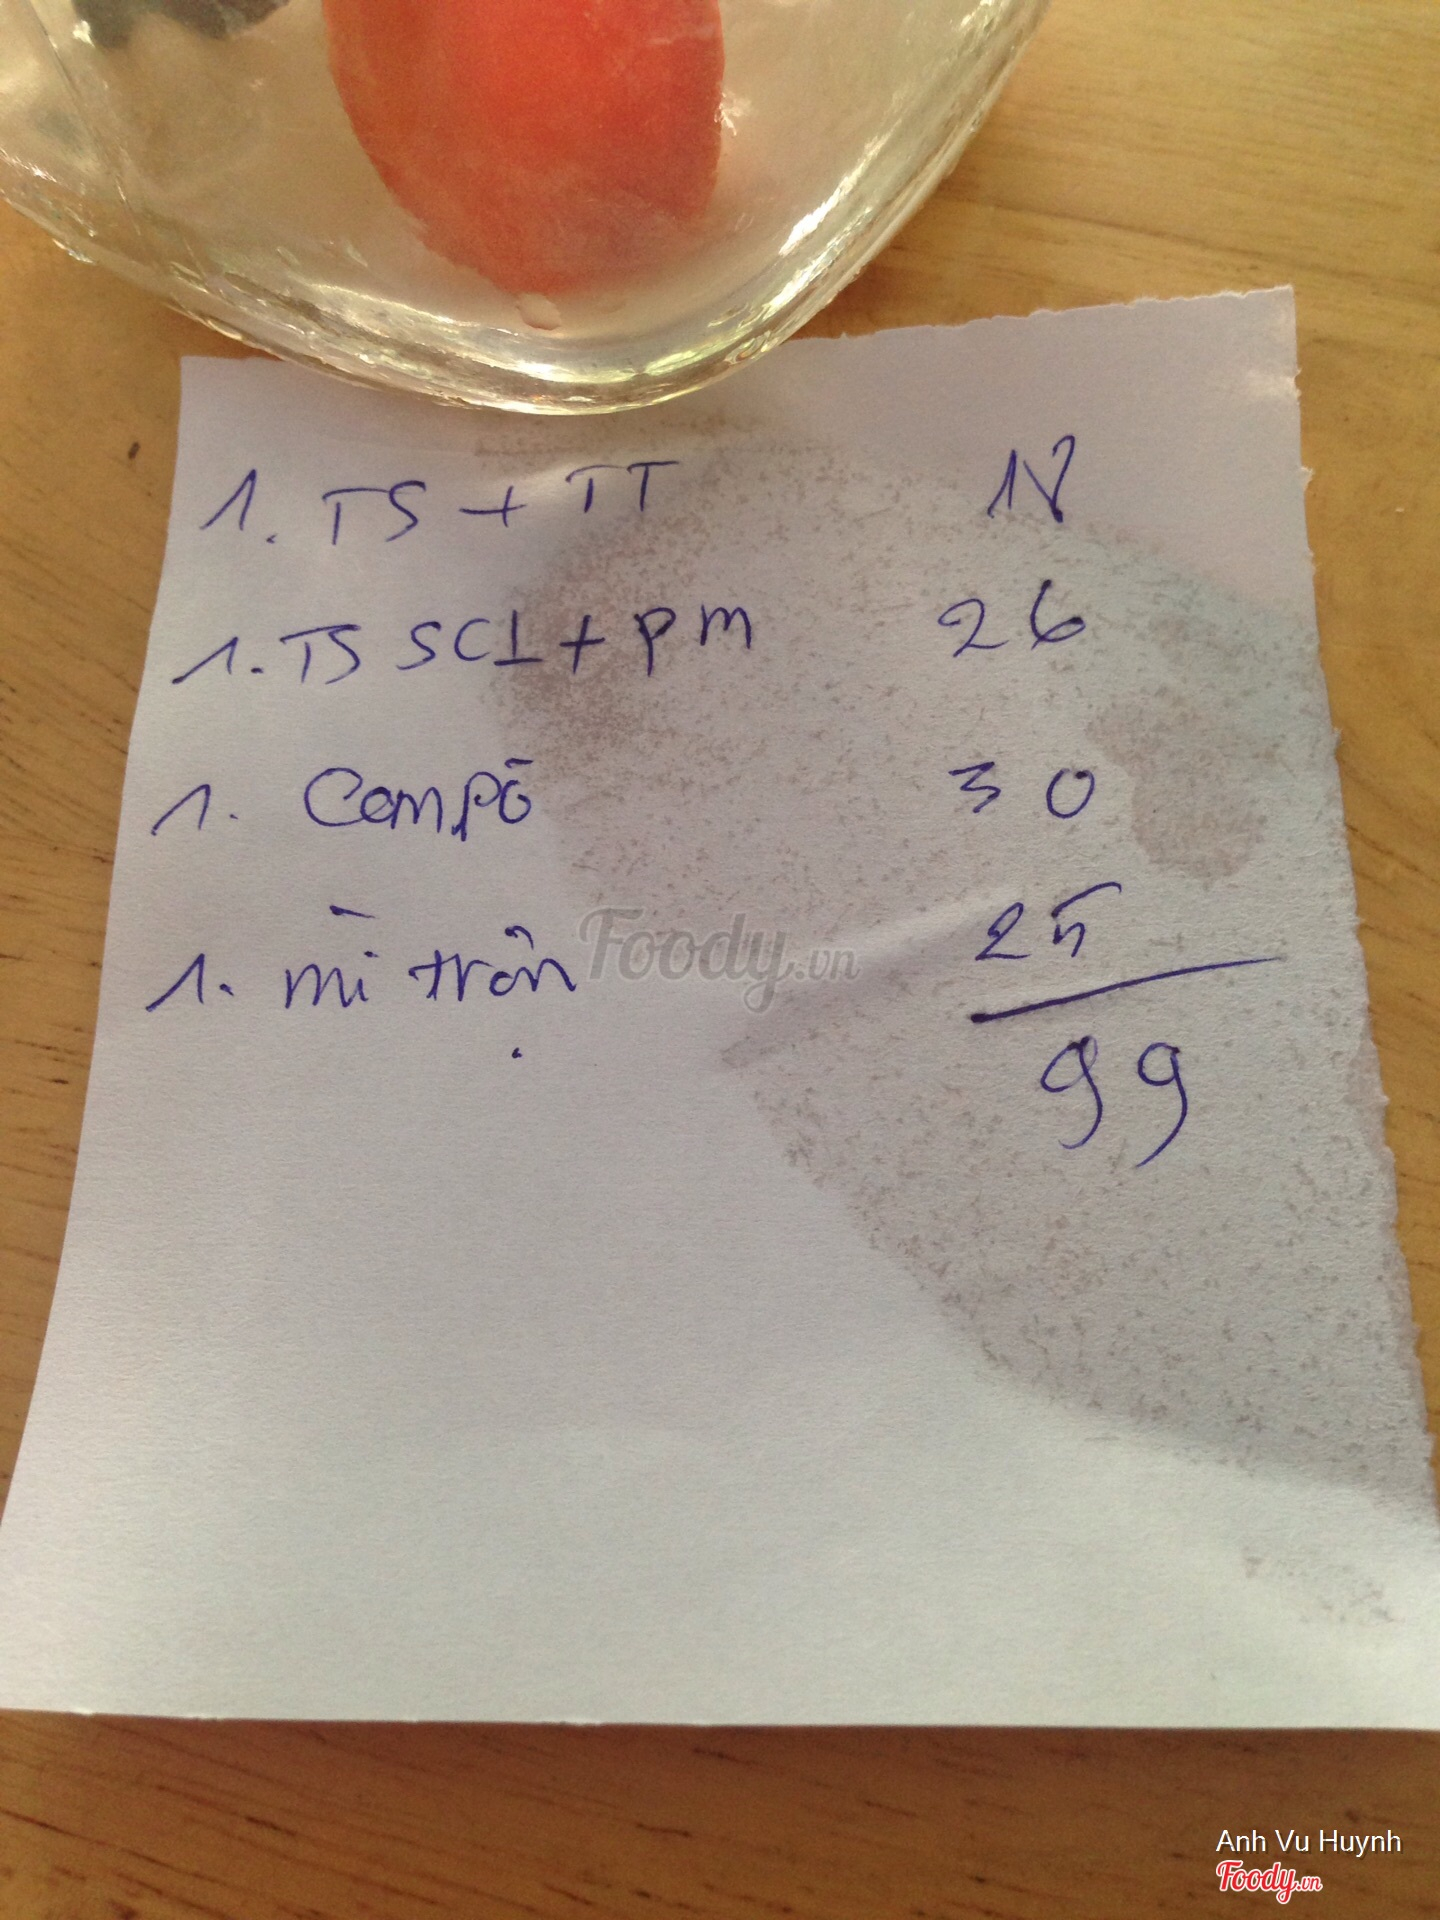 1. TS + TT 18
1. TS SCL + pm 26
1. Compô 30
1. mì trộn 25
99
Foody.vn
Anh Vu Huynh
Foody.vn